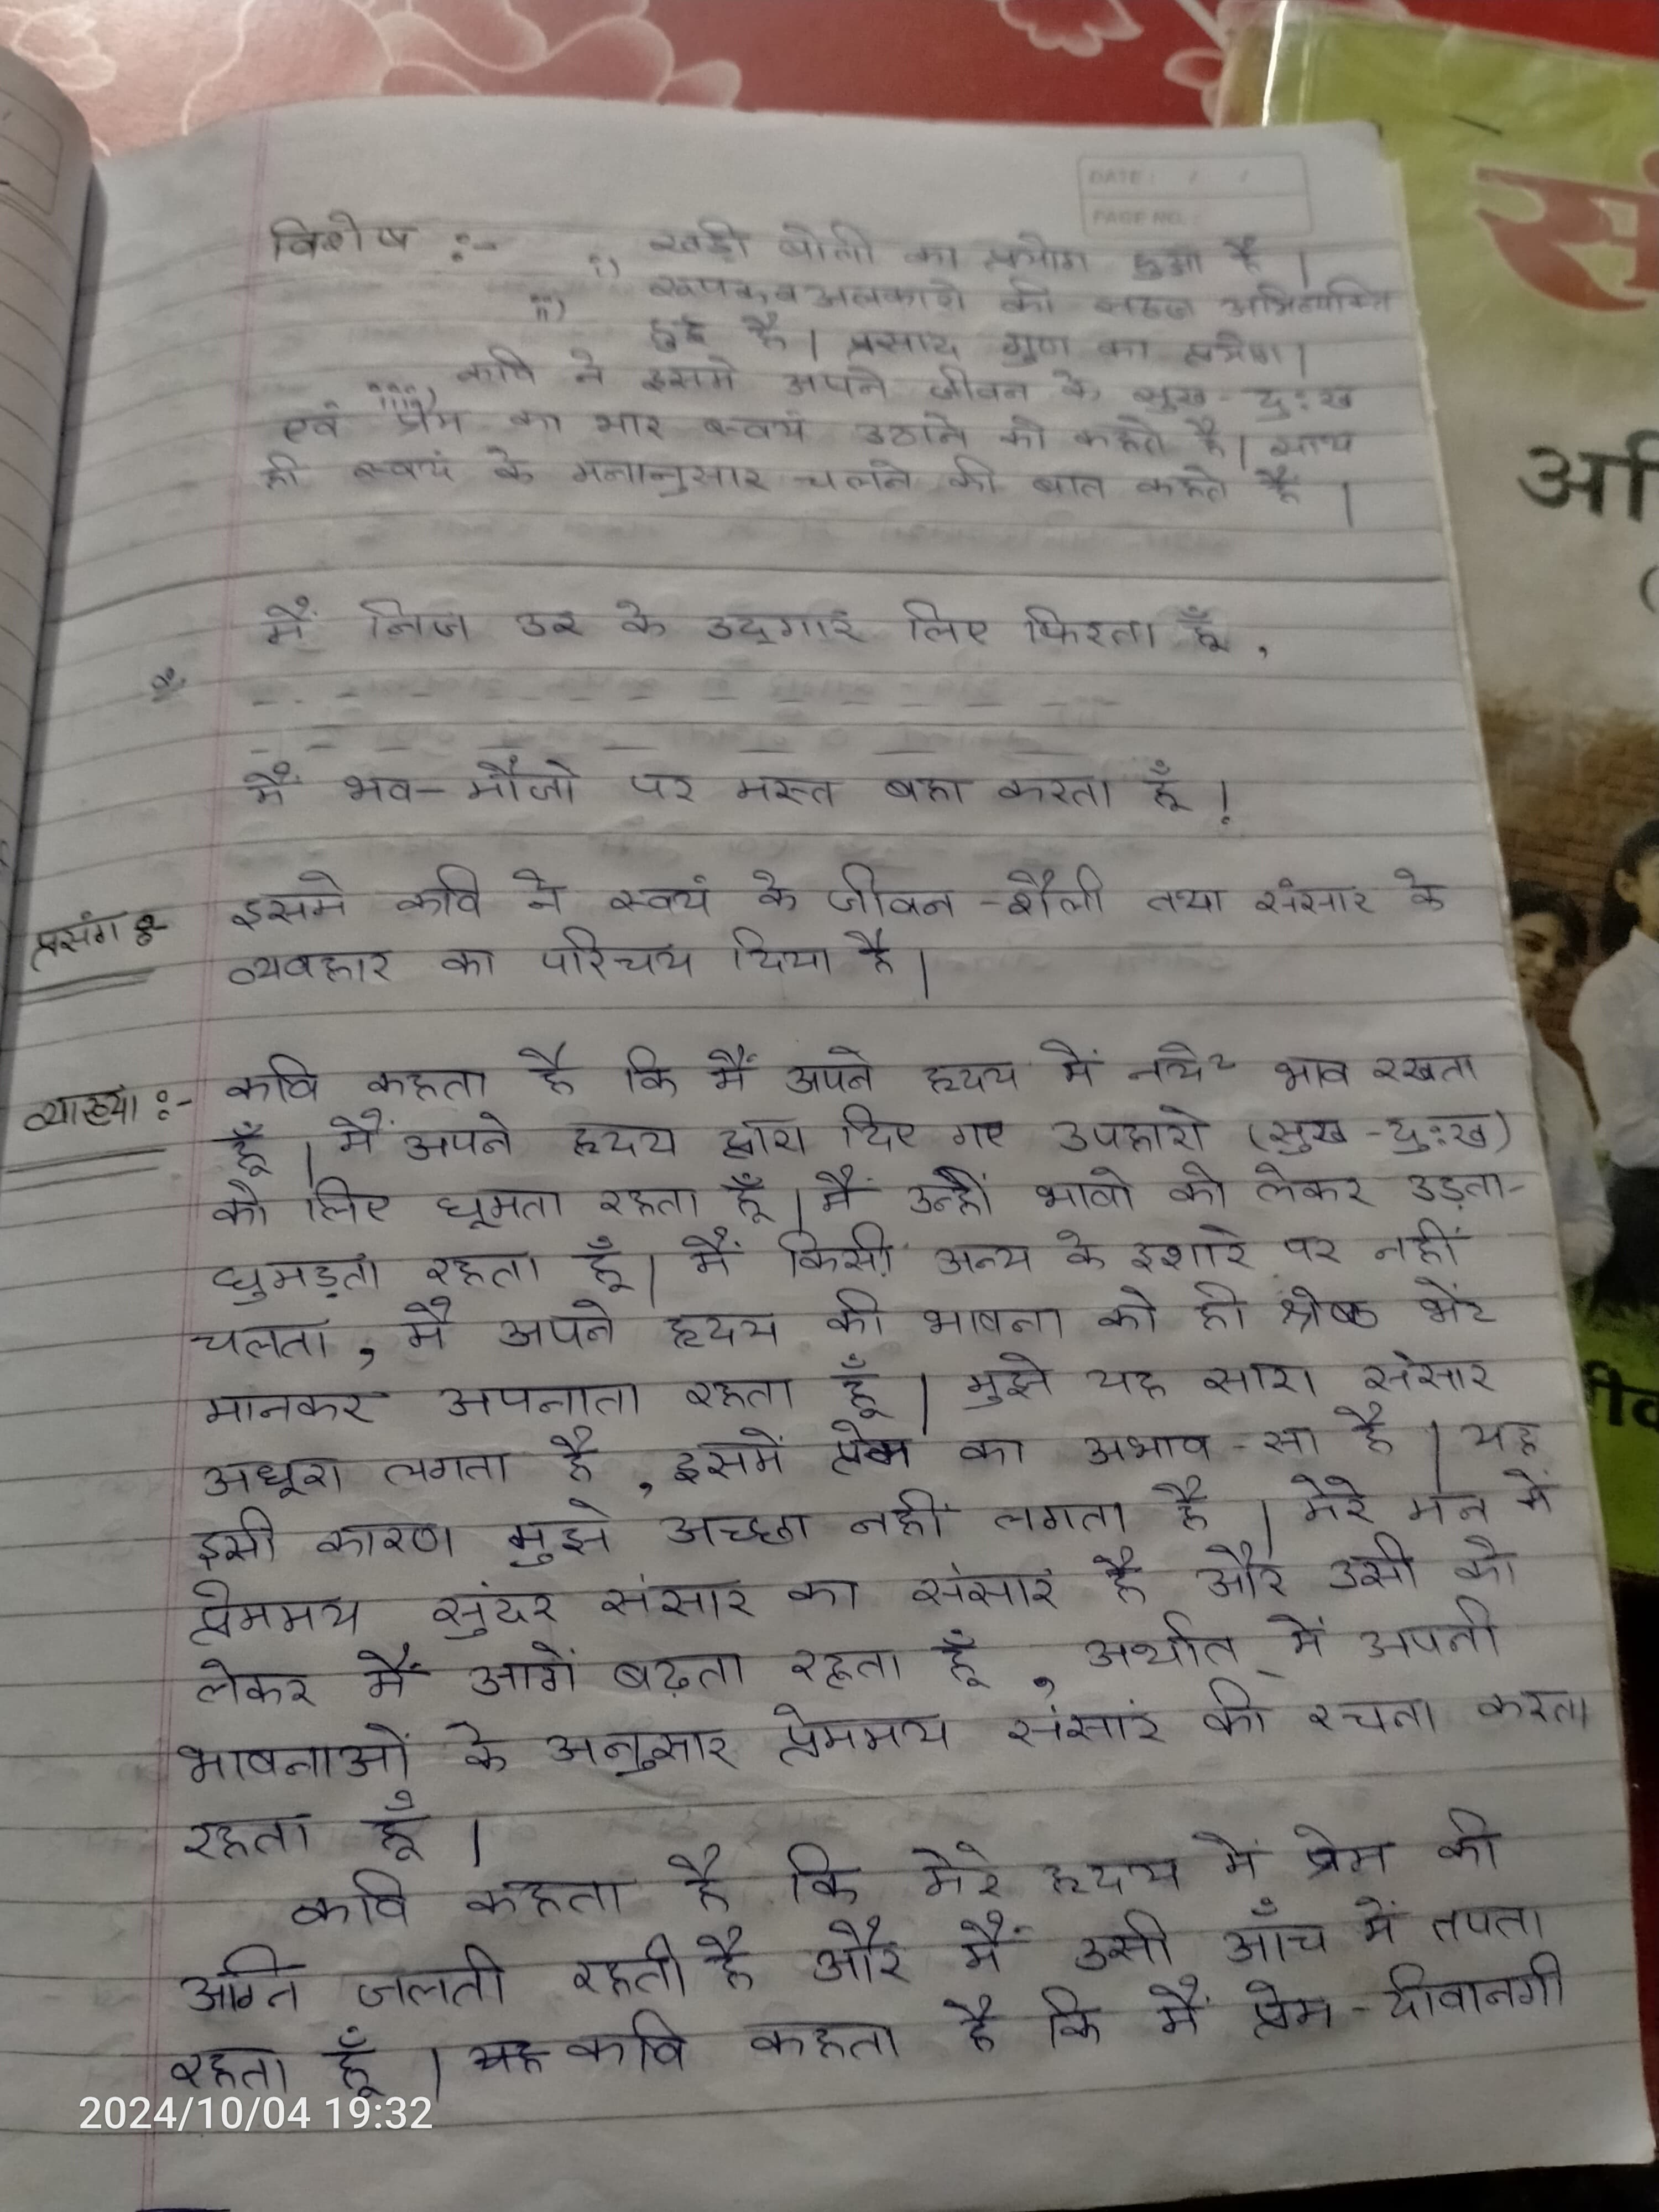 DATE: / /
PAGE NO.:
विशेष :- i) खड़ी बोली का प्रयोग हुआ है |
ii) रूपक व अलंकारो की सहज अभिव्यक्ति
हुई है | प्रसाद गुण का प्रयोग |
iii) कवि ने इसमे अपने जीवन के सुख-दु:ख
एवं प्रेम का भार स्वयं उठाने को कहते है | साथ
ही स्वयं के मनानुसार चलने की बात कहते हैं |
मैं निज उर के उद्गार लिए फिरता हूँ ,
मैं भव-मौजो पर मस्त बहा करता हूँ !
प्रसंग :- इसमे कवि ने स्वयं के जीवन-शैली तथा संसार के
व्यवहार का परिचय दिया है |
व्याख्या :- कवि कहता है कि मैं अपने हृदय में नये२ भाव रखता
हूँ | मैं अपने हृदय द्वारा दिए गए उपहारो (सुख-दु:ख)
को लिए घूमता रहता हूँ | मैं उन्हीं भावो को लेकर उड़ता-
घुमड़ता रहता हूँ | मैं किसी अन्य के इशारे पर नहीं
चलता , मै अपने हृदय की भावना को ही श्रेष्ठ भेंट
मानकर अपनाता रहता हूँ | मुझे यह सारा संसार
अधूरा लगता है , इसमें प्रेम का अभाव-सा है | यह
इसी कारण मुझे अच्छा नहीं लगता है | मेरे मन में
प्रेममय सुंदर संसार का संसार है और उसी को
लेकर मैं आगें बढ़ता रहता हूँ , अर्थात् में अपनी
भावनाओं के अनुसार प्रेममय संसार की रचना करता
रहता हूँ |
कवि कहता है कि मेरे हृदय में प्रेम की
अग्नि जलती रहती है और मैं उसी आँच में तपता
रहता हूँ | कवि कहता है कि मैं प्रेम-दीवानगी
2024/10/04 19:32